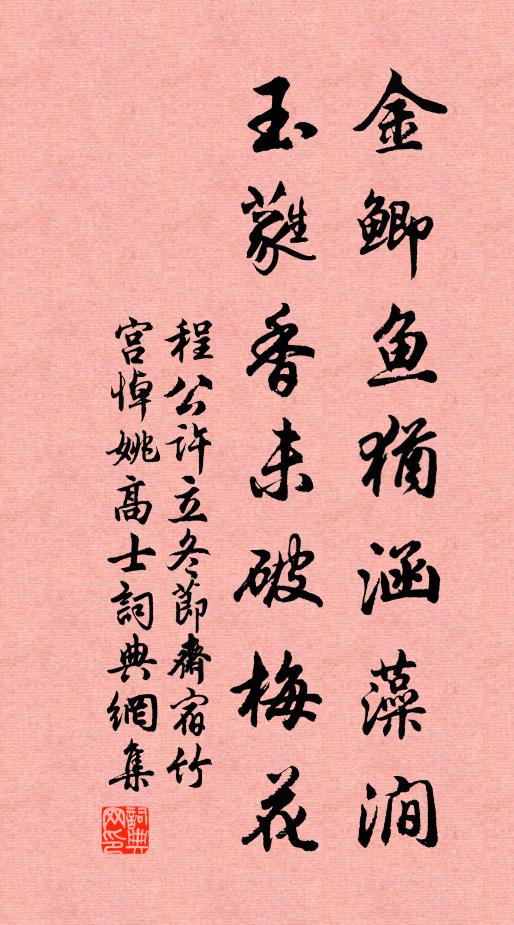 金鲫鱼犹涵藻涧
玉蕤香未破梅花
程公许立冬節齋宿竹
宫悼姚高士詞典網集
詞典网印